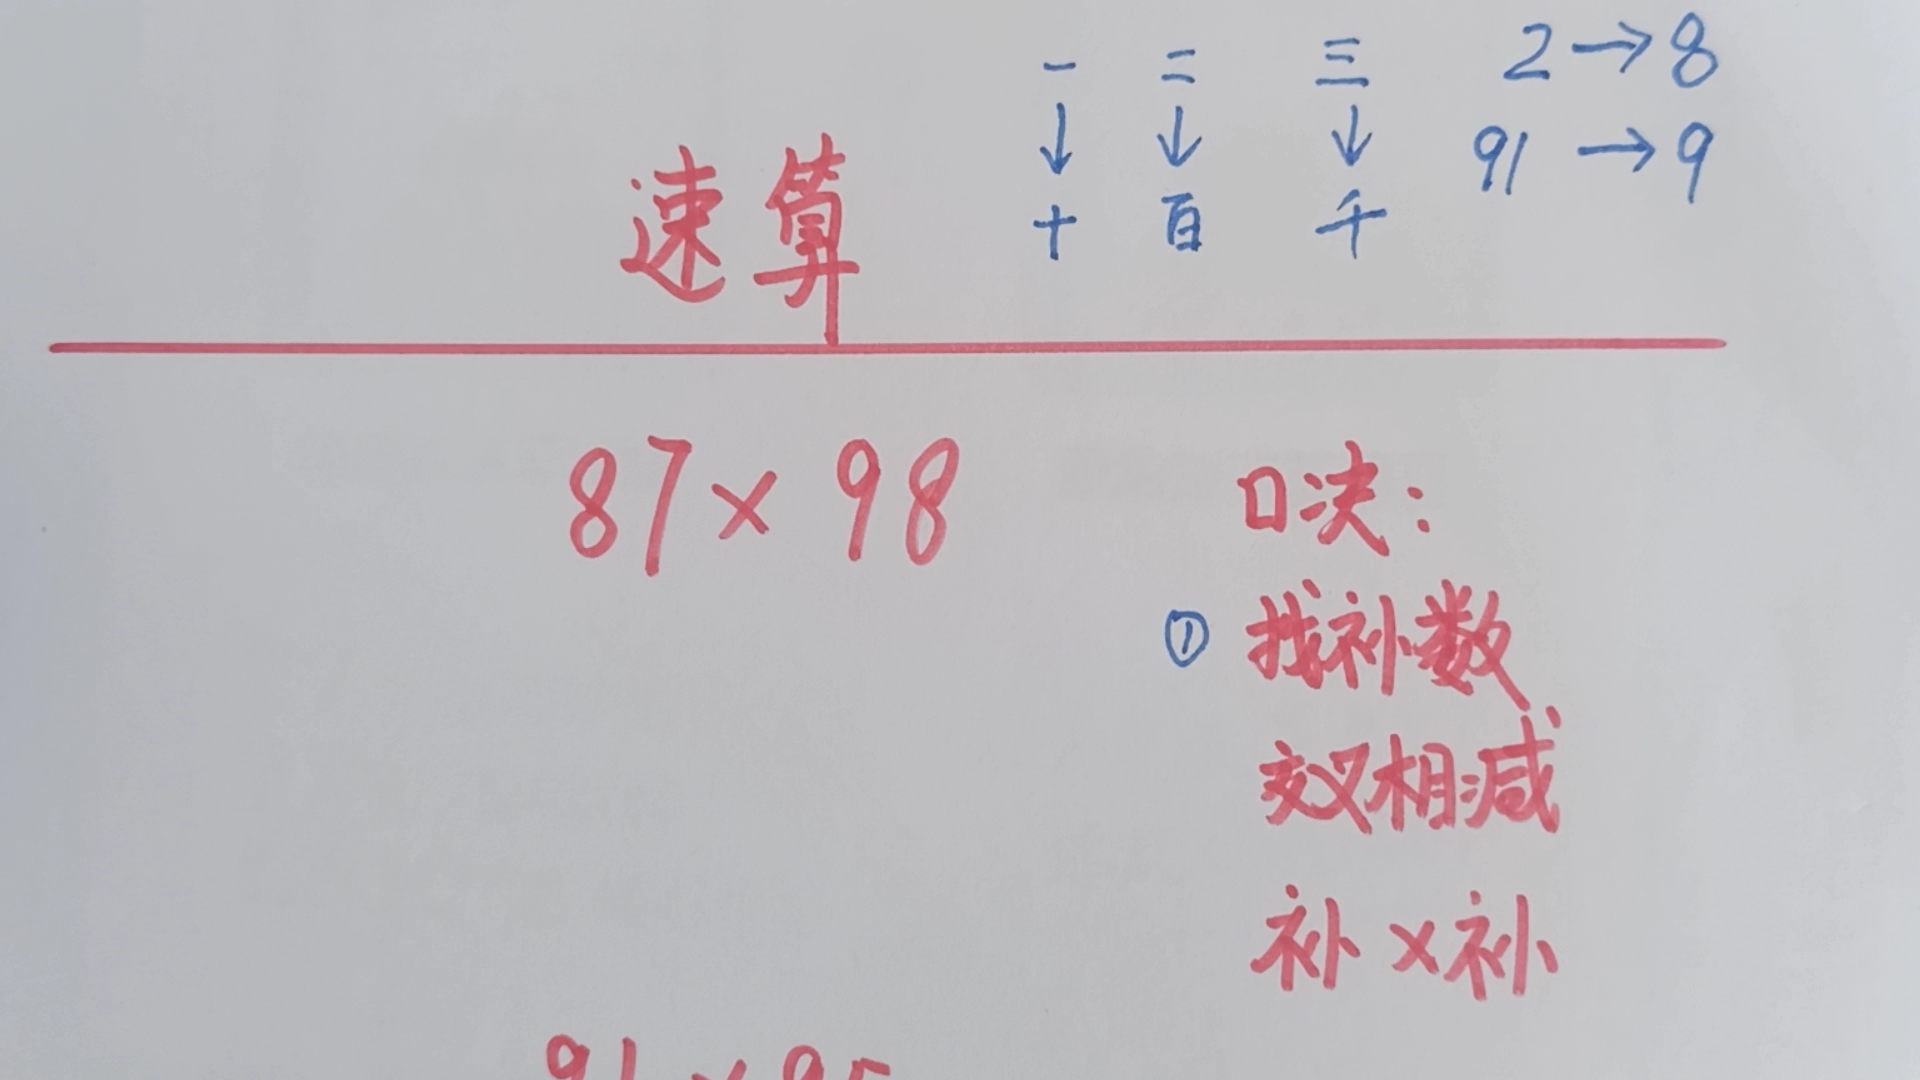 一 二 三 2→8
↓ ↓ ↓ 91→9
十 百 千
速算
87×98
口决:
① 找补数
交叉相减
补×补